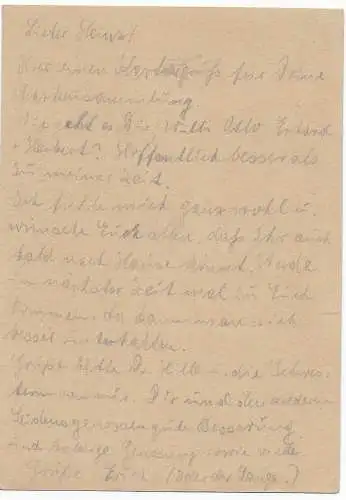 Lieber Heinz!
Hier einen für Deine
Markensammlung
Wie geht es Dir, Willi, Otto, Erhard
u. Herbert? Hoffentlich besser als
zu meiner Zeit.
Ich fühle mich ganz wohl u.
wünsche Euch allen, daß Ihr auch
bald nach Hause könnt. Werde
in nächster Zeit mal zu Euch
kommen, da kann man sich
besser unterhalten.
Grüße bitte Dr. Hill u. die Schwes-
tern von mir. Dir und den anderen
Leidensgenossen gute Besserung
und baldige Genesung sowie viele
Grüße Erich